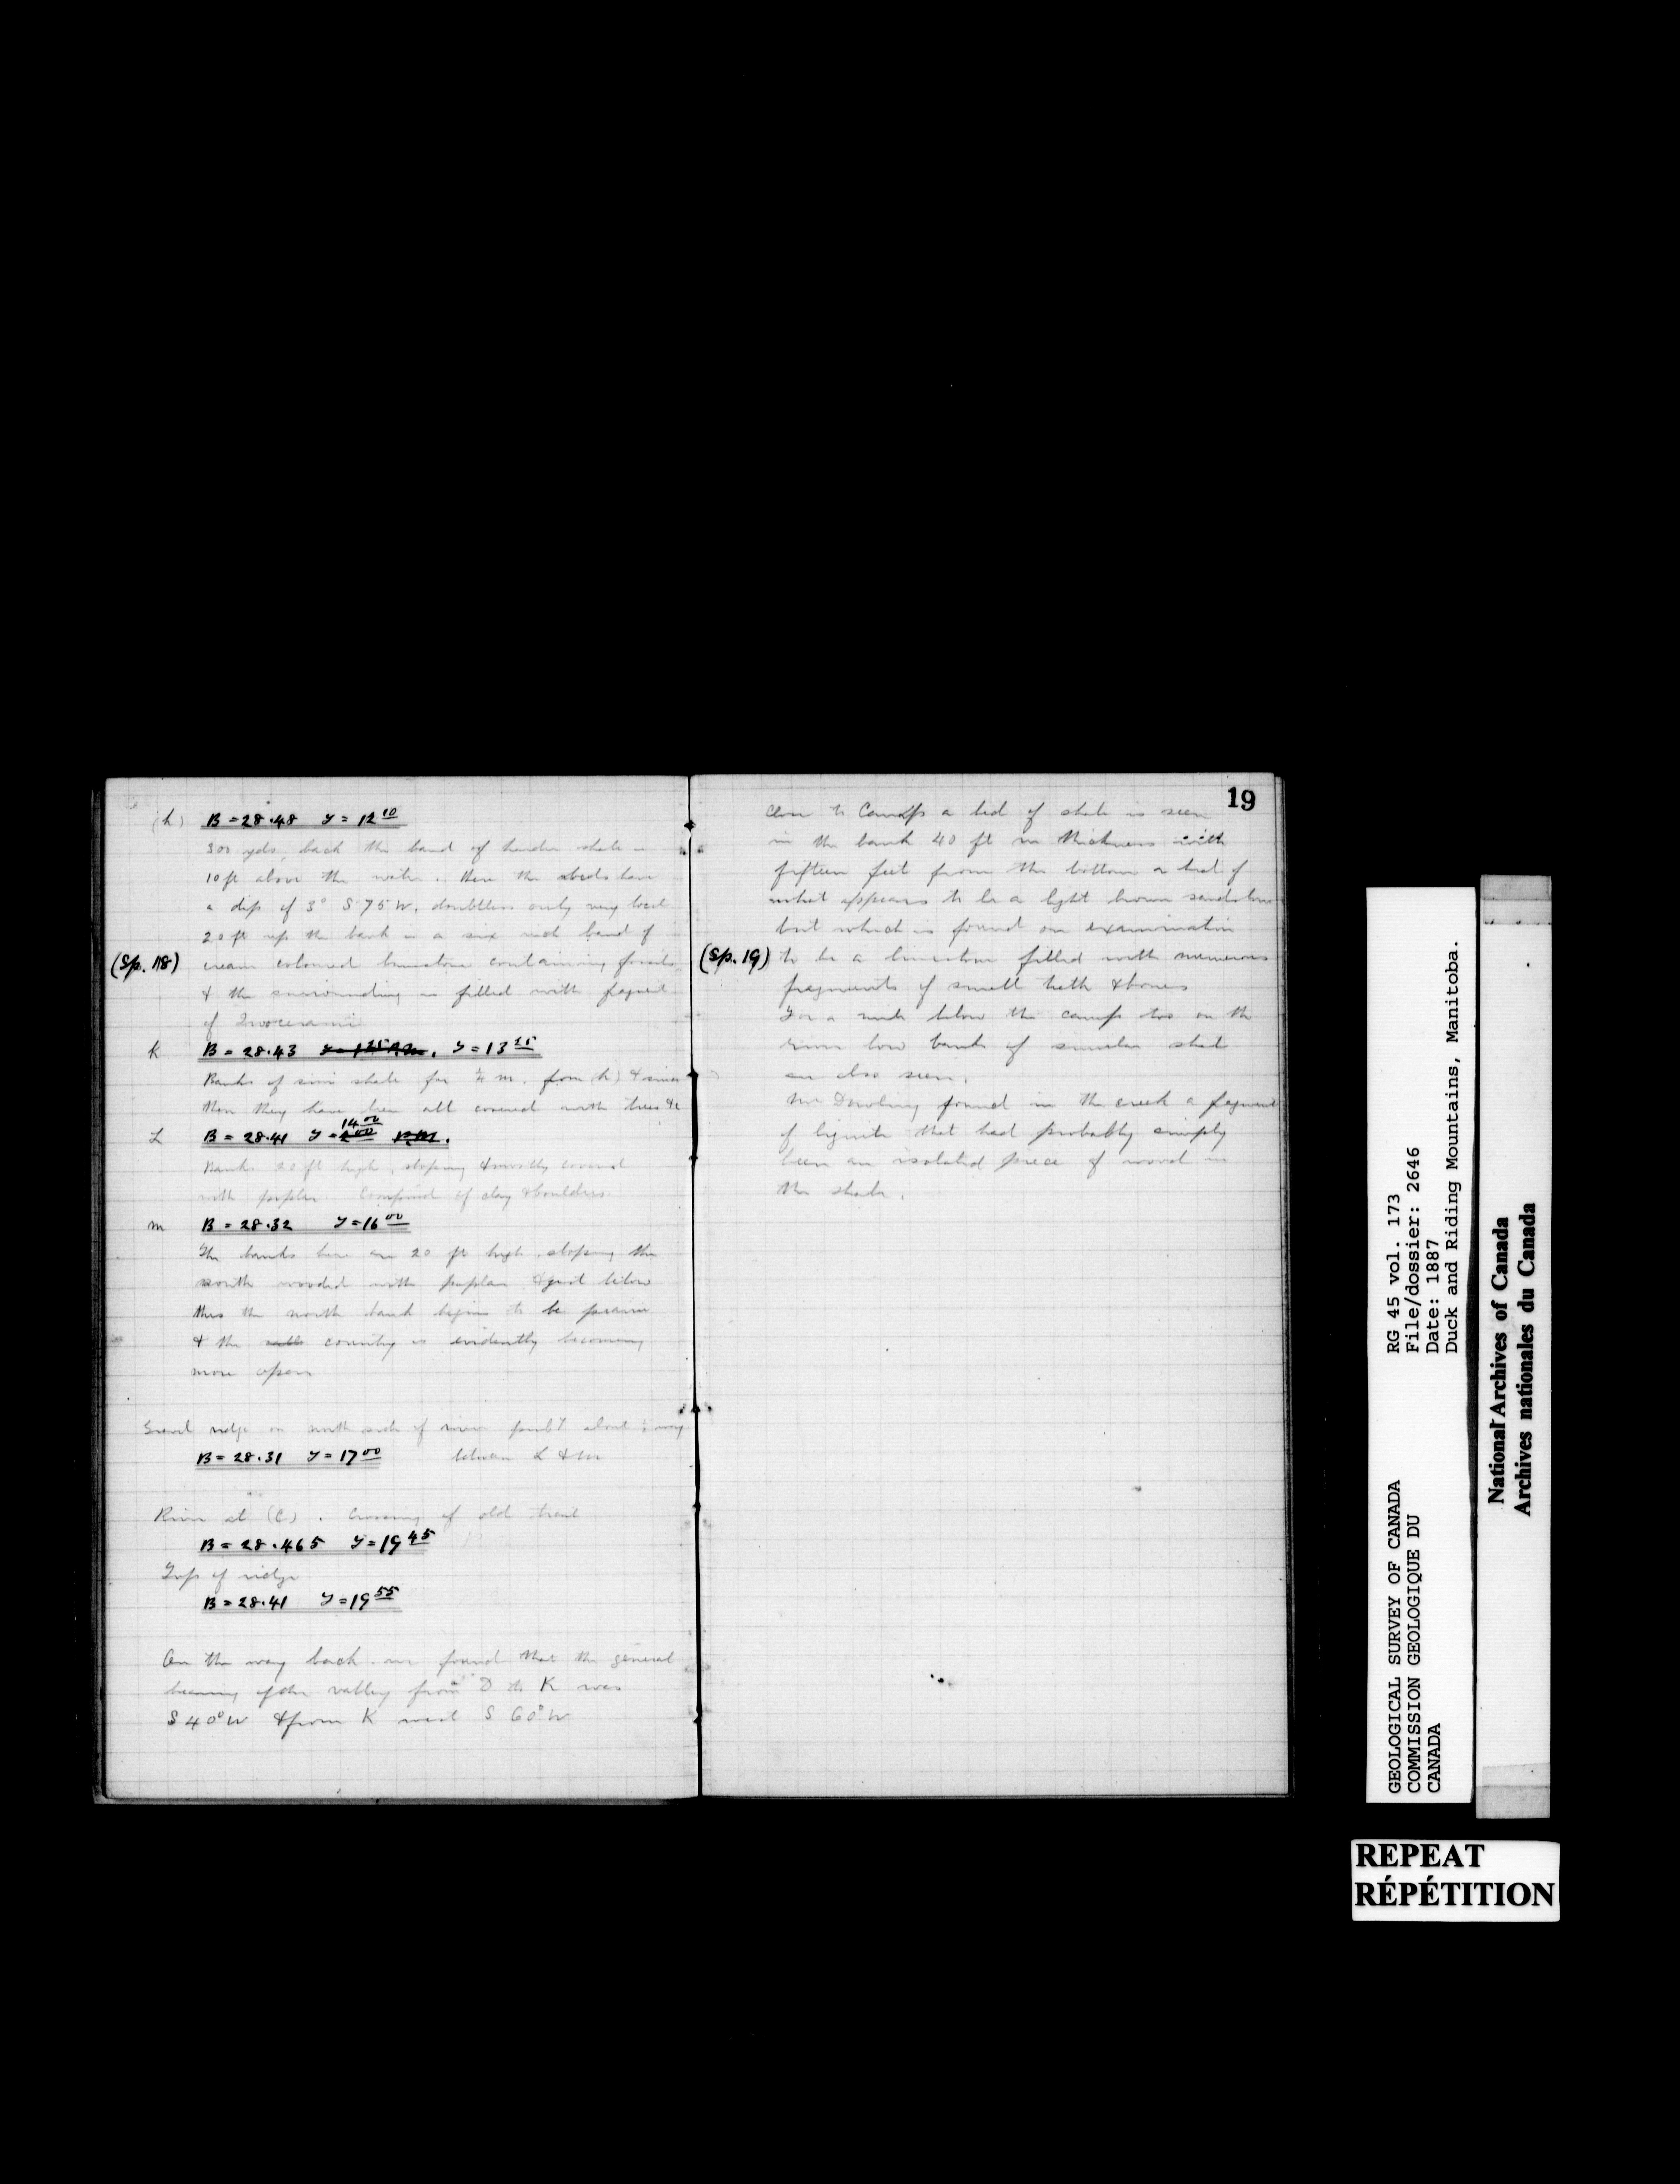 (h) B = 28.48 T = 12 10
300 yds. back the band of harder shale is
10 ft above the water. Here the beds have
a dip of 3° S 75 W. doubtless only very local
20 ft up the bank is a six inch band of
(Sp. 18) cream coloured limestone containing fossils
& the surrounding is filled with fragments
of Inocerami
K B = 28.43 T = 13 25
Banks of simi shale for ¼ m. from (h) & since
then they have been all covered with trees &c
L B = 28.41 T = 14 00
Banks 20 ft high, sloping & mostly covered
with poplar. Composed of clay & boulders.
m B = 28.32 T = 16 00
The banks here are 20 ft high sloping the
south wooded with poplar & just below
this the north bank begins to be prairie
& the country is evidently becoming
more open
Gravel ridge on north side of river about ½ way
B = 28.31 T = 17 00 between L & m
River at (C). Crossing of old trail
B = 28.465 T = 19 45
Top of ridge
B = 28.41 T = 19 55
On the way back we found that the general
bearing of the valley from D to K was
S 40° W & from K west S 60° W
19
Close to Camp a bed of shale is seen
in the bank 40 ft in thickness with
fifteen feet from the bottom a bed of
what appears to be a light brown sandstone
but which is found on examination
(Sp. 19) to be a limestone filled with numerous
fragments of small teeth & bones
For a mile below the camp too on the
river low banks of similar shale
are also seen.
Mr Dowling found in the creek a fragment
of lignite that had probably simply
been an isolated piece of wood in
the shale.
GEOLOGICAL SURVEY OF CANADA
COMMISSION GEOLOGIQUE DU
CANADA
RG 45 vol. 173
File/dossier: 2646
Date: 1887
Duck and Riding Mountains, Manitoba.
National Archives of Canada
Archives nationales du Canada
REPEAT
RÉPÉTITION